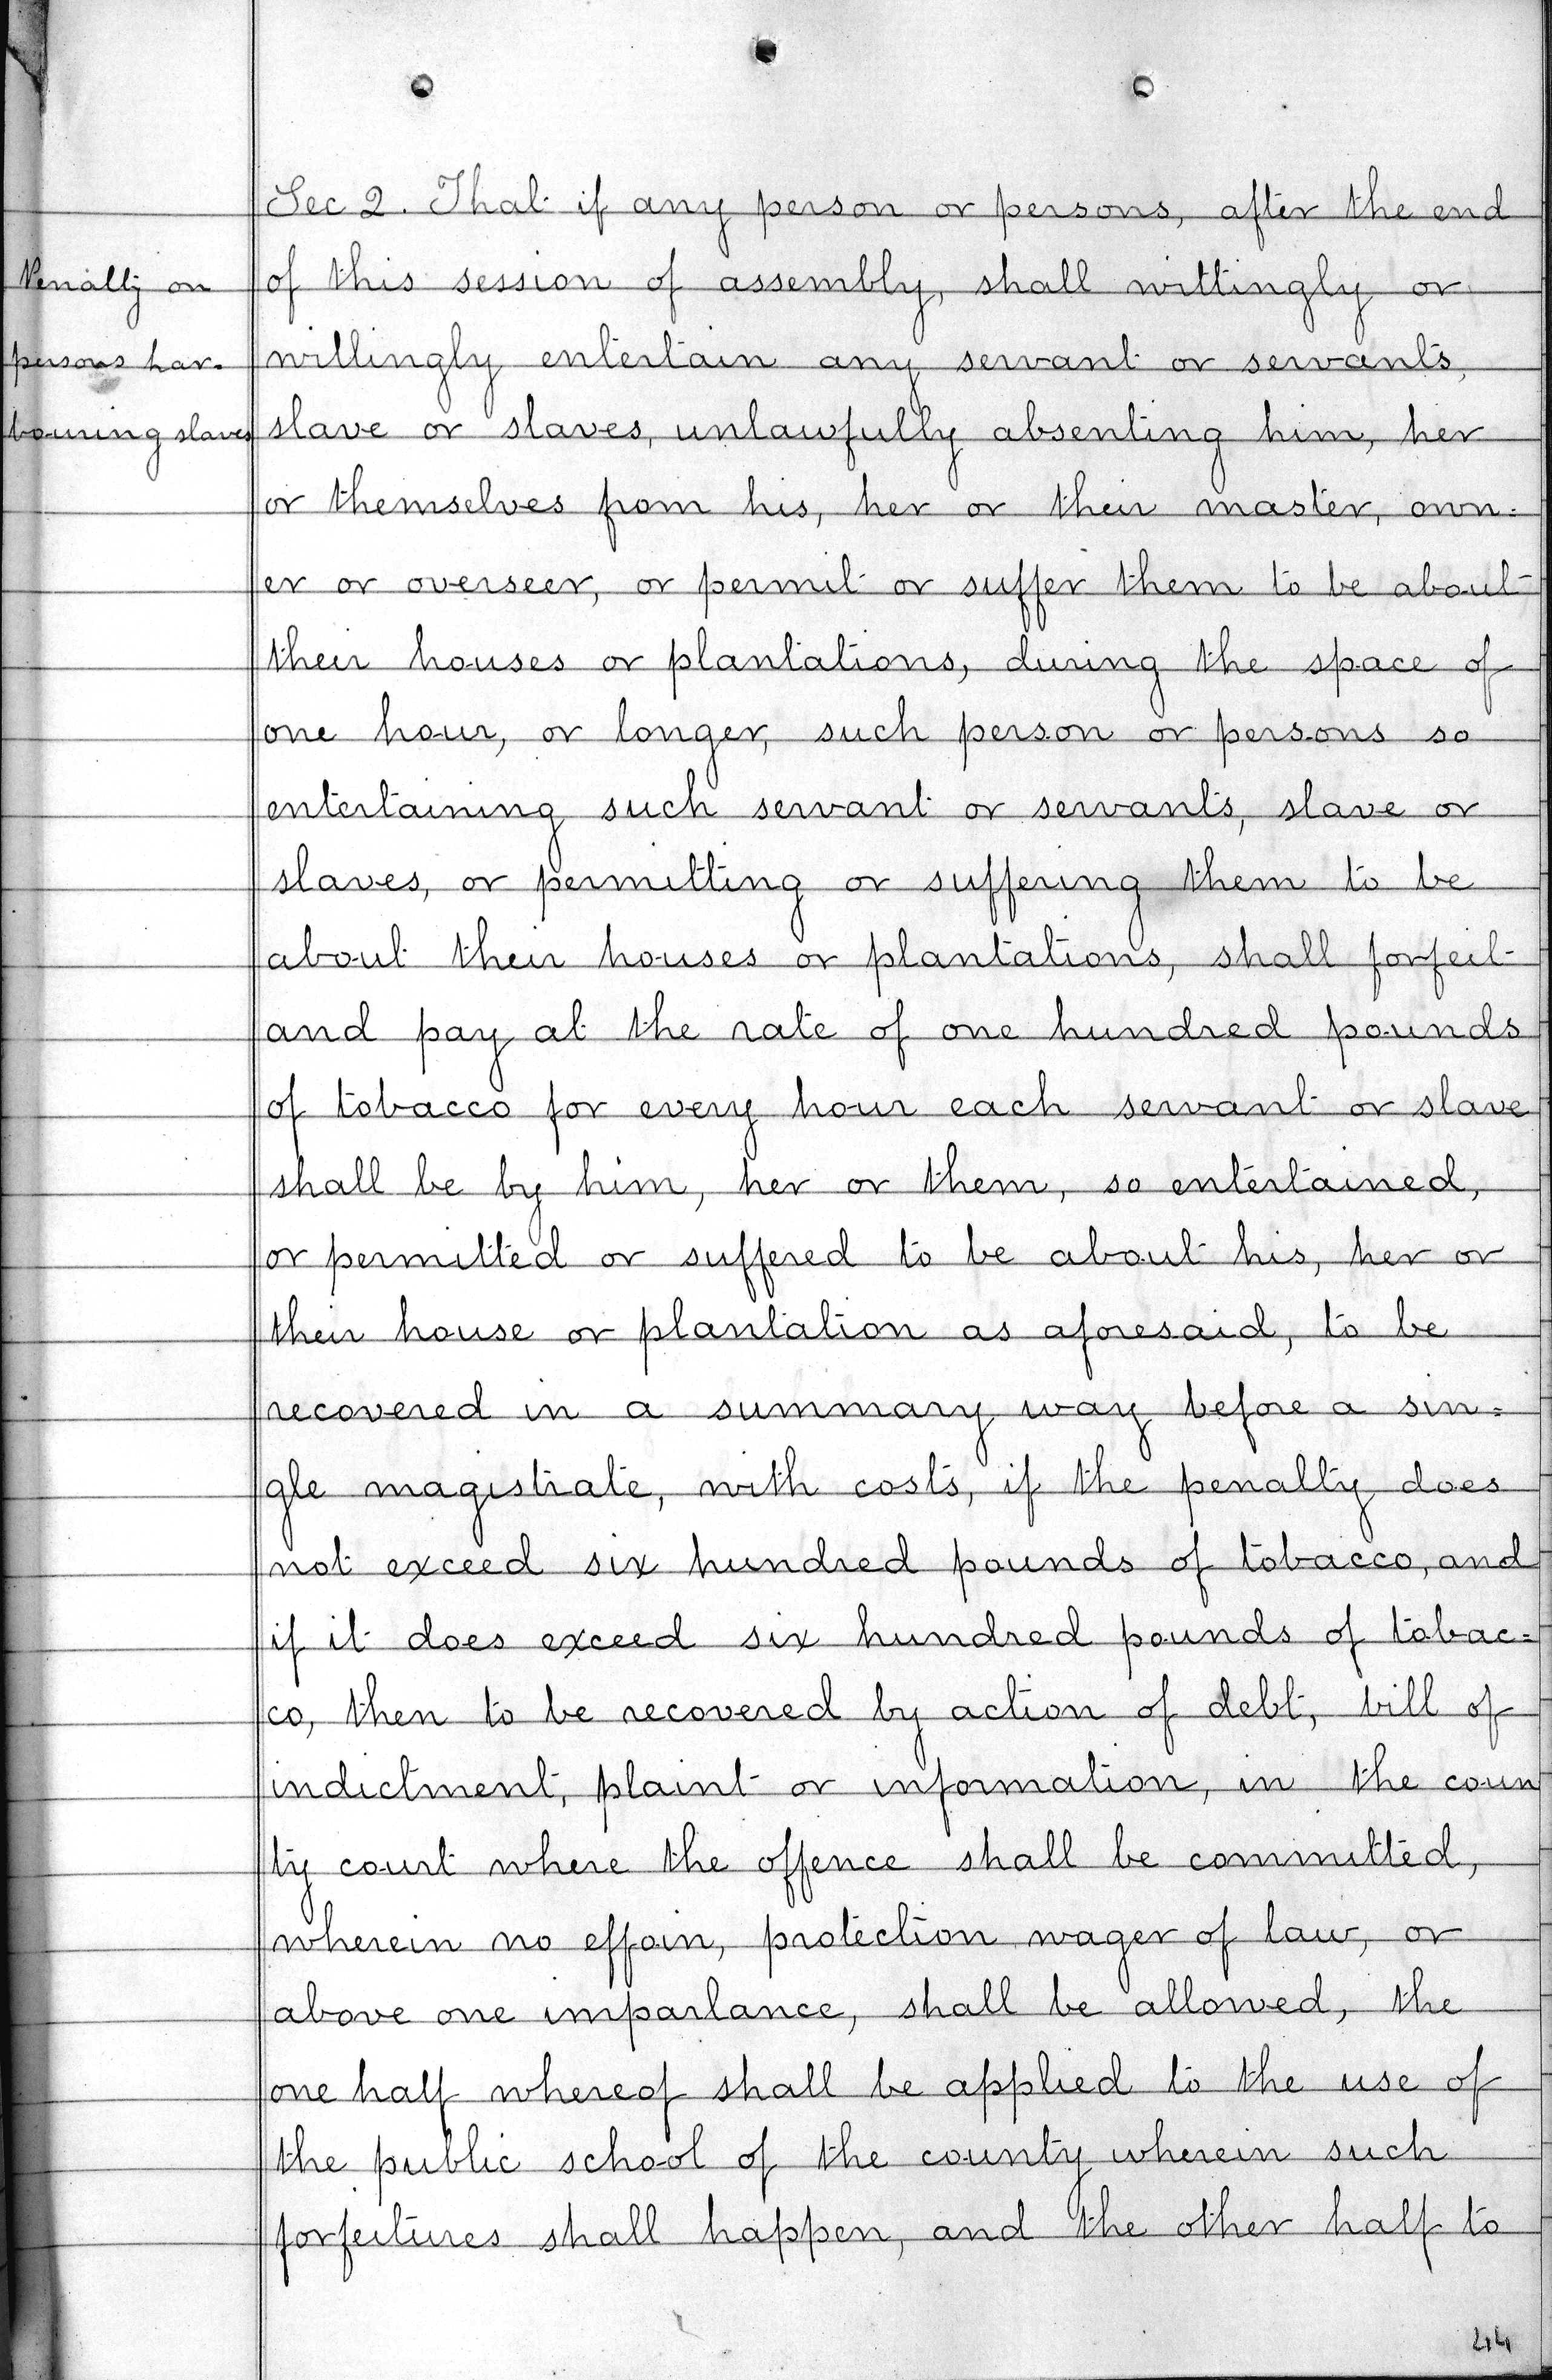 Sec 2. That if any person or persons, after the end
Penalty on
of this session of assembly, shall wittingly or
persons har-
willingly entertain any servant or servants,
bouring slaves
slave or slaves, unlawfully absenting him, her
or themselves from his, her or their master, own=
er or overseer, or permit or suffer them to be about
their houses or plantations, during the space of
one hour, or longer, such person or persons so
entertaining such servant or servants, slave or
slaves, or permitting or suffering them to be
about their houses or plantations, shall forfeit
and pay at the rate of one hundred pounds
of tobacco for every hour each servant or slave
shall be by him, her or them, so entertained,
or permitted or suffered to be about his, her or
their house or plantation as aforesaid, to be
recovered in a summary way before a sin=
gle magistrate, with costs, if the penalty does
not exceed six hundred pounds of tobacco, and
if it does exceed six hundred pounds of tobac=
co, then to be recovered by action of debt, bill of
indictment, plaint or information, in the coun
ty court where the offence shall be committed,
wherein no effoin, protection wager of law, or
above one imparlance, shall be allowed, the
one half whereof shall be applied to the use of
the public school of the county wherein such
forfeitures shall happen, and the other half to
44